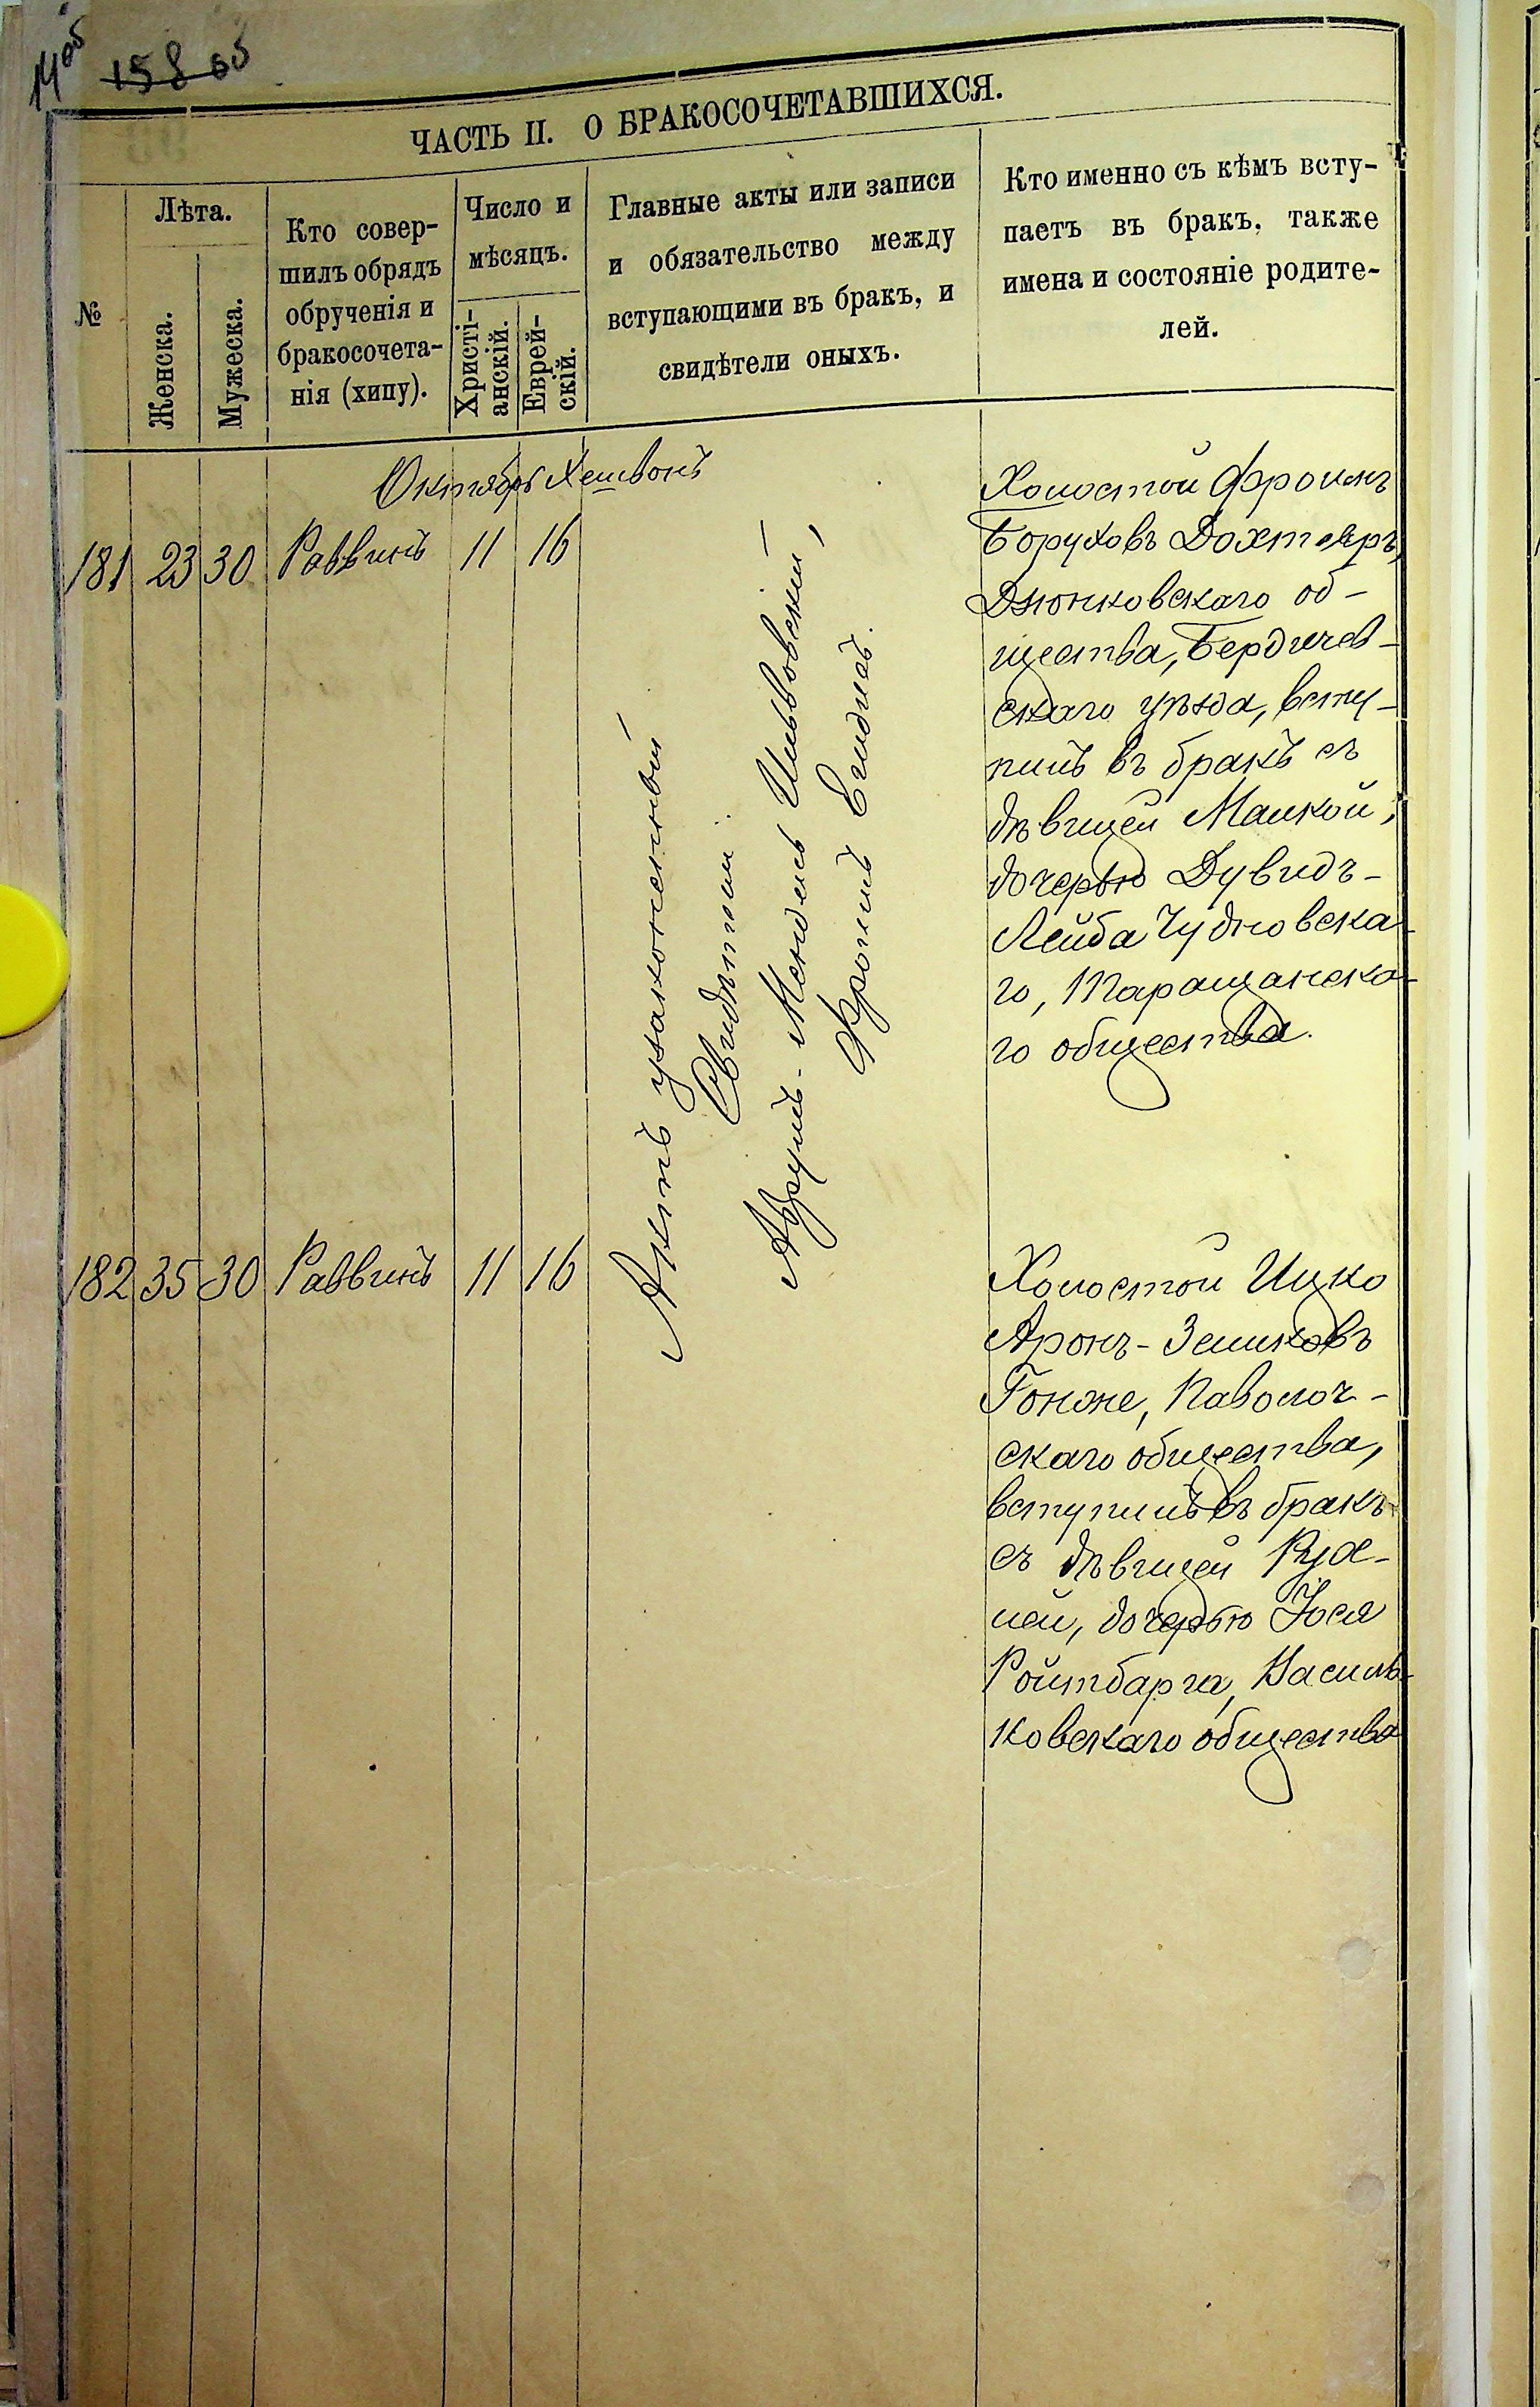 14 об 158 об
ЧАСТЬ II. О БРАКОСОЧЕТАВШИХСЯ.
№
Лѣта.
Женска.
Мужеска.
Кто совер-
шилъ обрядъ
обрученія и
бракосочета-
нія (хипу).
Число и
мѣсяцъ.
Христі-
анскій.
Еврей-
скій.
Главные акты или записи
и обязательство между
вступающими въ бракъ, и
свидѣтели оныхъ.
Кто именно съ кѣмъ всту-
паетъ въ бракъ, также
имена и состояніе родите-
лей.
Октябрь Хешвонъ
181 23 30 Раввинъ 11 16
Актъ узаконенный
Свидѣтели:
Аврумъ-Мендель Ильвовскій,
Фроимъ Сиднев.
Холостой Фроимъ
Боруховъ Дохтяръ,
Дзюнковскаго об-
щества, Бердичев-
скаго уѣзда, всту-
пилъ въ бракъ съ
дѣвицей Малкой,
дочерью Дувидъ-
Лейба Чудновска-
го, Таращанска-
го общества.
182 35 30 Раввинъ 11 16
Холостой Ицко
Аронъ-Зеликовъ
Гонже, Паволоч-
скаго общества,
вступилъ въ бракъ
съ дѣвицей Рух-
лей, дочерью Іося
Ройтбарга, Василь-
ковскаго общества